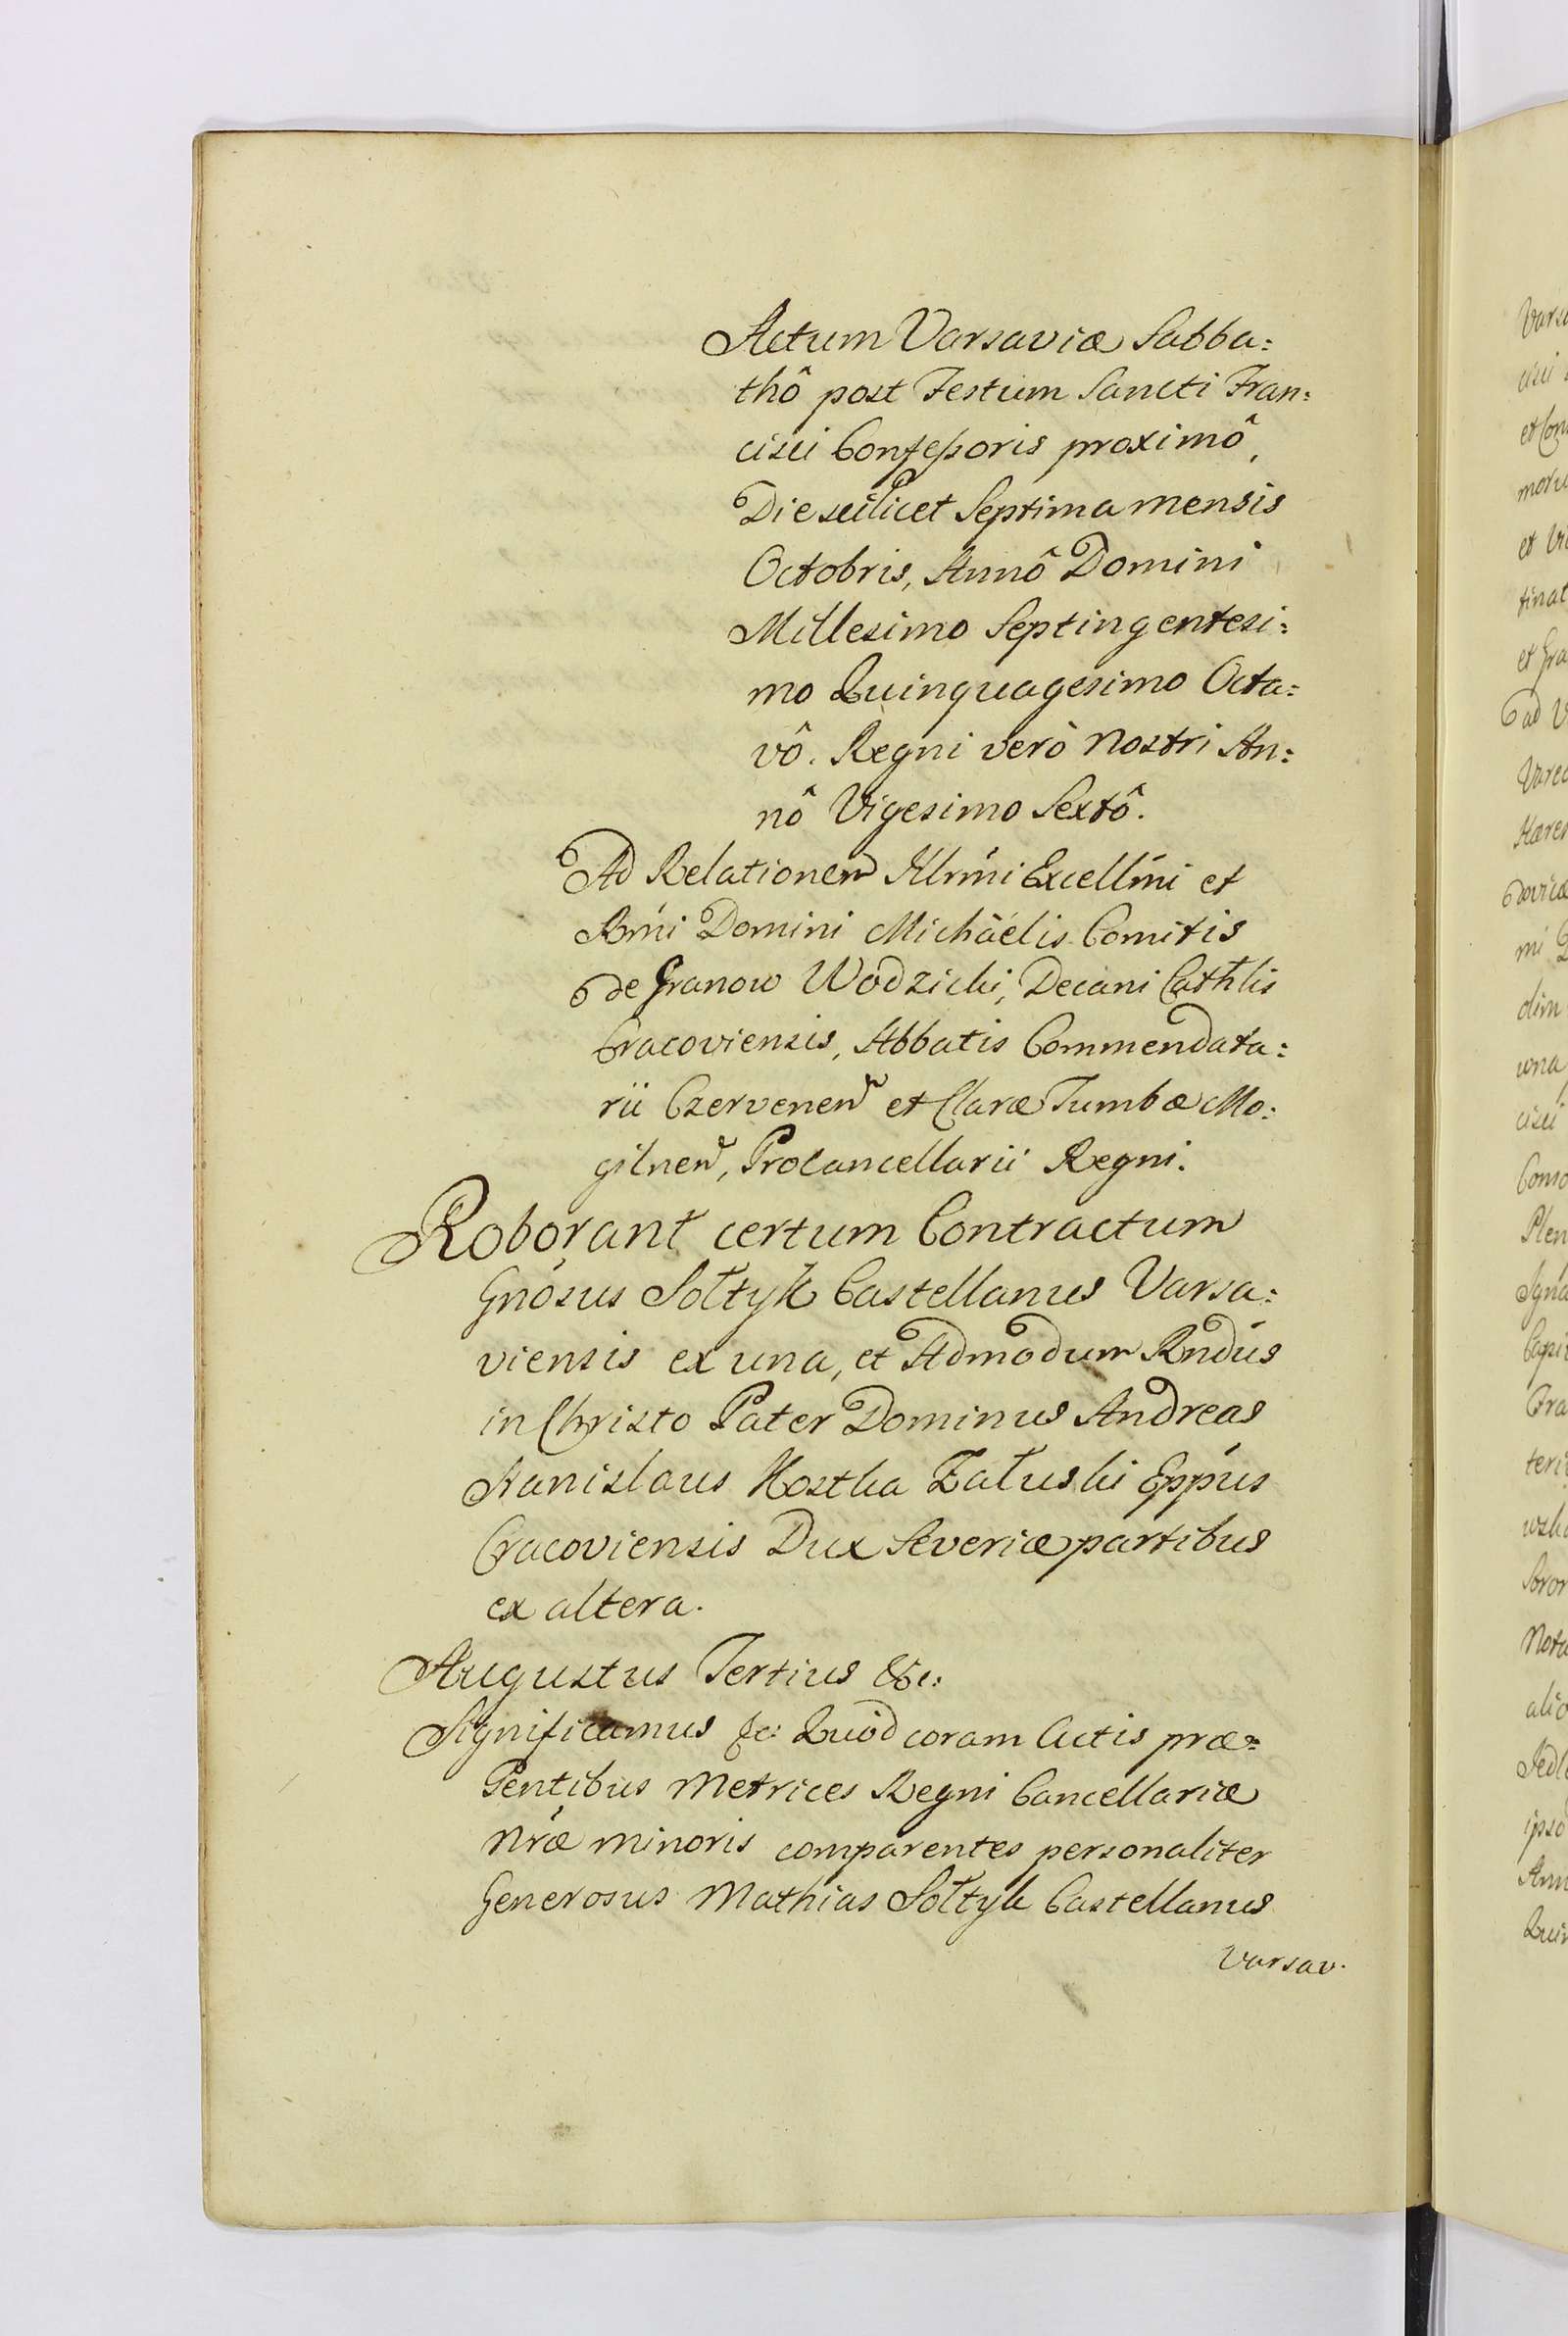 Actum Varsaviæ Sabba:
thô post Festum Sancti Fran:
cisci Confessoris proximô,
Die scilicet Septima mensis
Octobris, Annô Domini
Millesimo Septingentesi:
mo Quinquagesimo Octa:
vô. Regni verò nostri An:
nô Vigesimo Sextô.
Ad Relationem Illrmi Excellmi et
Rmi Domini Michäelis Comitis
de Granow Wodzicki, Decani Cathlis
Cracoviensis, Abbatis Commendata:
rii Czervenen et Claræ Tumbæ Mo:
gilnen, Procancellarii Regni.
Roborant certum Contractum
Gnosus Sołtyk Castellanus Varsa:
viensis ex una, et Admodum Rndus
in Christo Pater Dominus Andreas
Stanislaus Kostka Załuski Eppus
Cracoviensis Dux Severiæ partibus
ex altera.
Augustus Tertius &c:
Significamus &c: Quod coram Actis præ=
sentibus Metrices Regni Cancellariæ
Nræ minoris comparentes personaliter
Generosus Mathias Sołtyk Castellanus
Varsav.